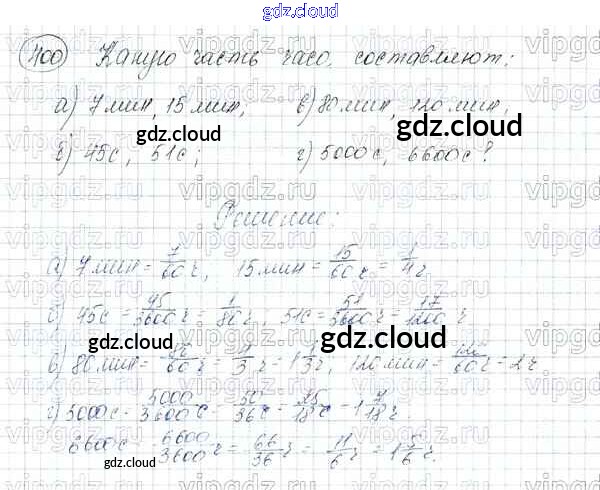 gdz.cloud
400 Какую часть часа составляют:
а) 7 мин, 15 мин, в) 80 мин, 120 мин,
б) 45с, 51с; г) 5000с, 6600с?
gdz.cloud gdz.cloud
Решение:
а) 7 мин = 7/60 ч, 15 мин = 15/60 ч = 1/4 ч.
б) 45с = 45/3600 ч = 1/80 ч, 51с = 51/3600 = 17/1200 ч
в) 80 мин = 80/60 ч = 4/3 ч = 1 1/3 ч, 120 мин = 120/60 ч = 2 ч
gdz.cloud gdz.cloud
г) 5000с = 5000/3600 с = 50/36 с = 25/18 с = 1 7/18 ч.
6600с = 6600/3600 ч = 66/36 ч = 11/6 ч = 1 5/6 ч.
gdz.cloud gdz.cloud